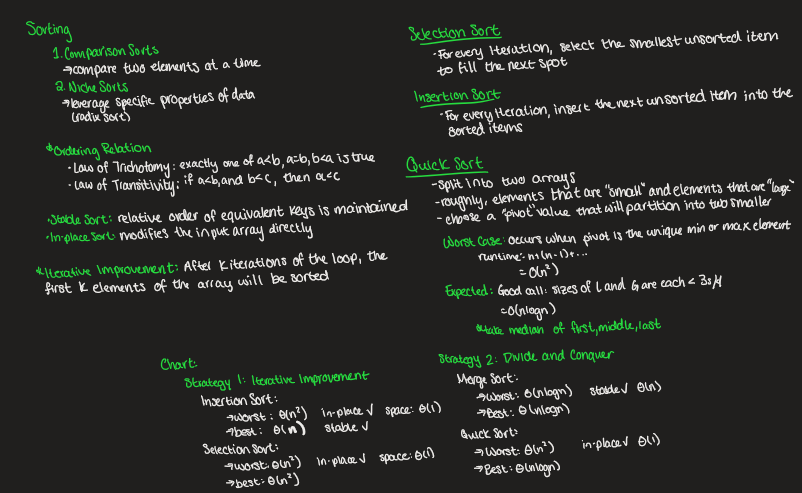 Sorting
1. Comparison Sorts
→compare two elements at a time
2. Niche Sorts
→leverage specific properties of data
(radix sort)
*Ordering Relation
- Law of Trichotomy: exactly one of a<b, a=b, b<a is true
- Law of Transitivity: if a<b, and b<c, then a<c
•Stable Sort: relative order of equivalent keys is maintained
•In-place Sort: modifies the input array directly
*Iterative Improvement: After K iterations of the loop, the
first K elements of the array will be sorted
Selection Sort
-For every iteration, select the smallest unsorted item
to fill the next spot
Insertion Sort
-For every iteration, insert the next unsorted item into the
sorted items
Quick Sort
-Split into two arrays
-roughly, elements that are "small" and elements that are "large"
- choose a "pivot" value that will partition into two smaller
Worst Case: occurs when pivot is the unique min or max element
runtime: n+(n-1)+...
= O(n²)
Expected: Good call: sizes of L and G are each < 3s/4
=O(nlogn)
*take median of first, middle, last
Chart:
Strategy 1: Iterative Improvement
Insertion Sort:
→worst: Θ(n²) in-place ✓ space: Θ(1)
→best: Θ(n) stable ✓
Selection Sort:
→worst: Θ(n²) in-place ✓ space: Θ(1)
→best: Θ(n²)
Strategy 2: Divide and Conquer
Merge Sort:
→Worst: Θ(nlogn) stable ✓ Θ(n)
→Best: Θ(nlogn)
Quick Sort:
→Worst: Θ(n²) in-place ✓ Θ(1)
→Best: Θ(nlogn)